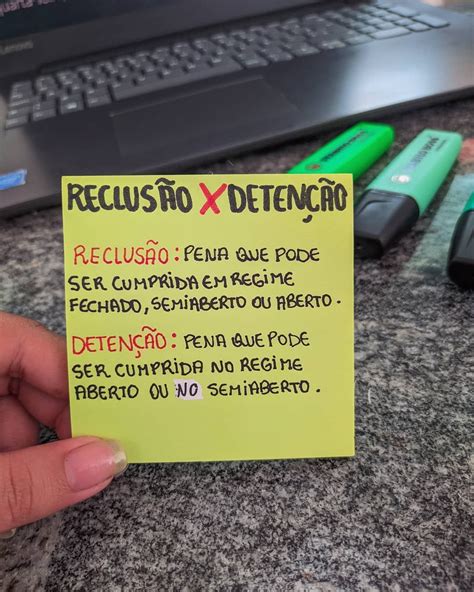 Lenovo
RECLUSÃO X DETENÇÃO
RECLUSÃO: PENA QUE PODE
SER CUMPRIDA EM REGIME
FECHADO, SEMIABERTO OU ABERTO.
DETENÇÃO: PENA QUE PODE
SER CUMPRIDA NO REGIME
ABERTO OU NO SEMIABERTO.